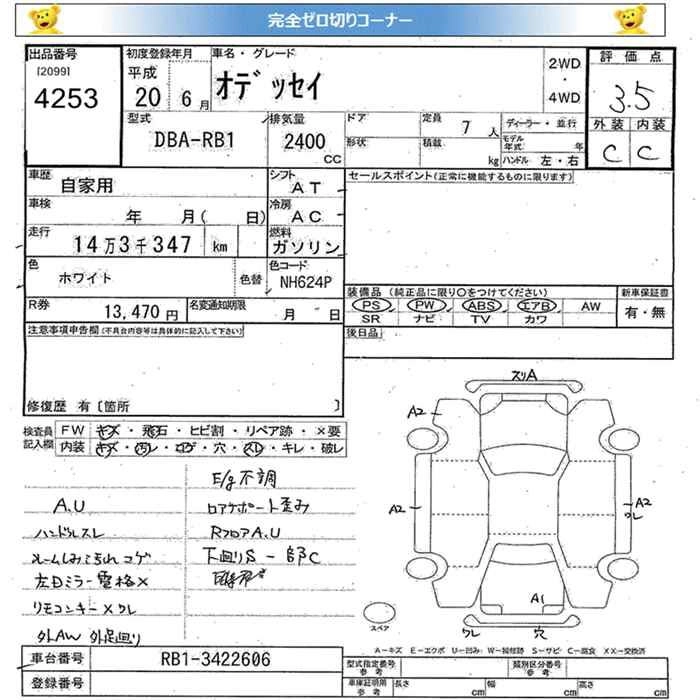 完全ゼロ切りコーナー
出品番号 初度登録年月 車名・グレード 評価点
[2099] 平成 オデッセイ 2WD
4253 20 6月 4WD 3.5
型式 排気量 ドア 定員 7人 ディーラー・並行 外装 内装
DBA-RB1 2400 cc 形状 積載 kg モデル年式 年 ハンドル 左・右 C C
車歴 自家用 シフト AT セールスポイント(正常に機能するものに限ります)
車検 年 月( 日) 冷房 AC
走行 14万3千347 km 燃料 ガソリン
色 ホワイト 色替 色コード NH624P
R券 13,470円 名変通知期限 月 日
装備品(純正品に限り○をつけてください) 新車保証書
PS PW ABS エアB AW 有・無
SR ナビ TV カワ
注意事項申告欄(不具合内容等は具体的に記入して下さい) 後日品
修復歴 有〔箇所 〕
検査員記入欄 FW キズ・飛石・ヒビ割・リペア跡・×要
内装 キズ・汚レ・コゲ・穴・スレ・キレ・破レ
A.U
ハンドルスレ
ルームしみ汚れ コゲ
左Dミラー電格×
リモコンキー×ワレ
外AW 外足廻り
E/g不調
ロアサポート歪み
RフロアA.U
下廻りS-部C
スリA
A2
A2
A2
ワレ
A1
ワレ 穴
スペア
A-キズ E-エクボ U-凹み W-補修跡 S-サビ C-腐食 XX-交換済
車台番号 RB1-3422606 型式指定番号 参考 類別区分番号 参考
登録番号 車庫証明用 参考 長さ cm 幅 cm 高さ cm